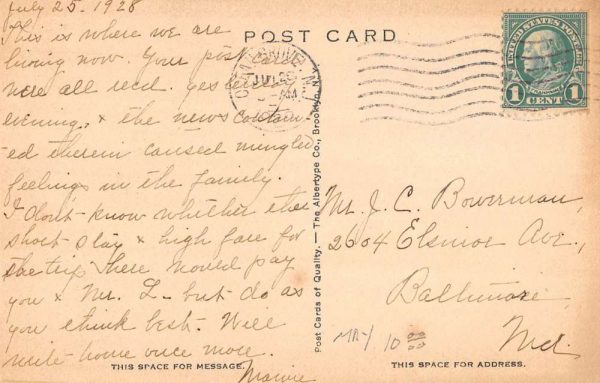 July 25, 1928
This is where we are
living now. Your post cards
were all recd. yesterday
evening, & the news contain-
ed therein caused mingled
feelings in the family.
I don't know whether the
short stay & high fare for
the trip here would pay
you & Mr. L. but do as
you think best. Will
write home once more.
POST CARD
UNITED STATES POSTAGE
FRANKLIN
1 CENT 1
OCEAN GROVE N.J.
JUL 26
AM
Post Cards of Quality. — The Albertype Co., Brooklyn, N.Y.
Mr. J. C. Bowerman,
2604 Elsinor Ave.,
Baltimore,
Md.
MRY 10 00
THIS SPACE FOR MESSAGE.
THIS SPACE FOR ADDRESS.